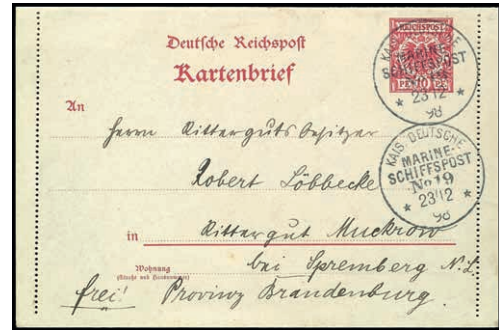 Deutsche Reichspost
Kartenbrief
REICHSPOST
PF 10 PF
KAIS. DEUTSCHE
MARINE-
SCHIFFSPOST
No 19
* 23/12 *
98
KAIS. DEUTSCHE
MARINE-
SCHIFFSPOST
No 19
* 23/12 *
98
An
Herrn Rittergutsbesitzer
Robert Löbbecke
in Rittergut Muckrow
Wohnung
(Straße und Hausnummer)
bei Spremberg N.L.
frei! Provinz Brandenburg.